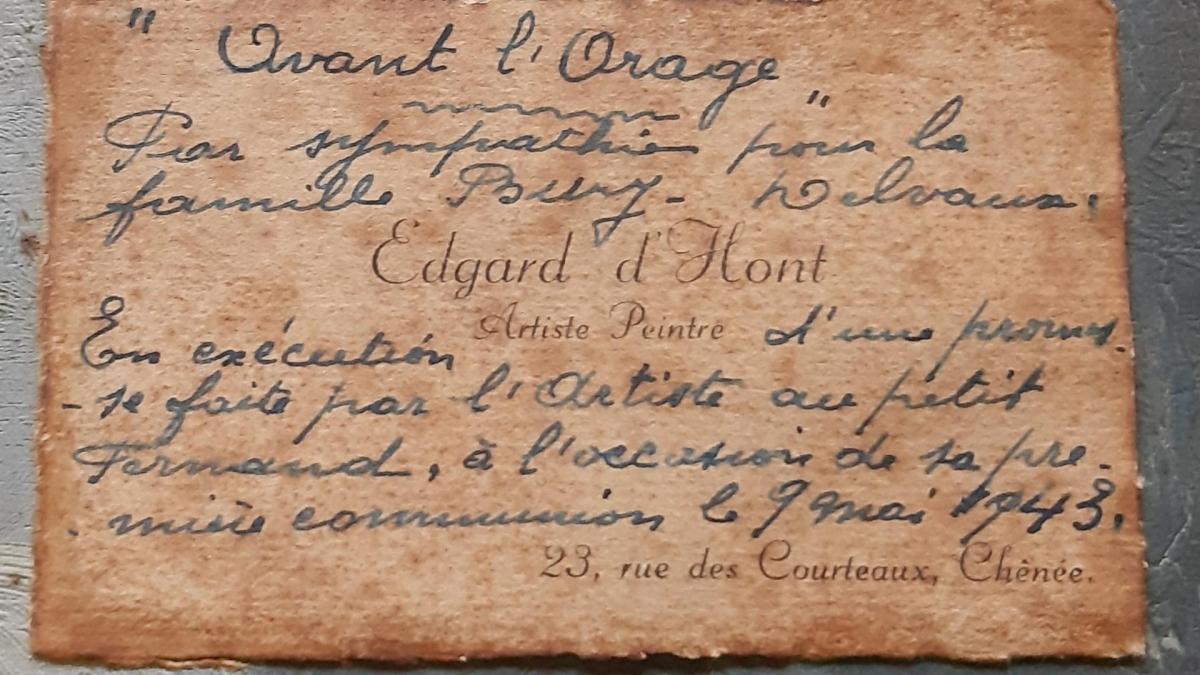 " Avant l'Orage "
Par sympathie pour la
famille Bury - Delvaux.
Edgard d'Hont
Artiste Peintre
En exécution d'une promes-
-se faite par l'Artiste au petit
Fernand, à l'occasion de sa pre-
-mière communion le 9 mai 1943.
23, rue des Courteaux, Chênée.